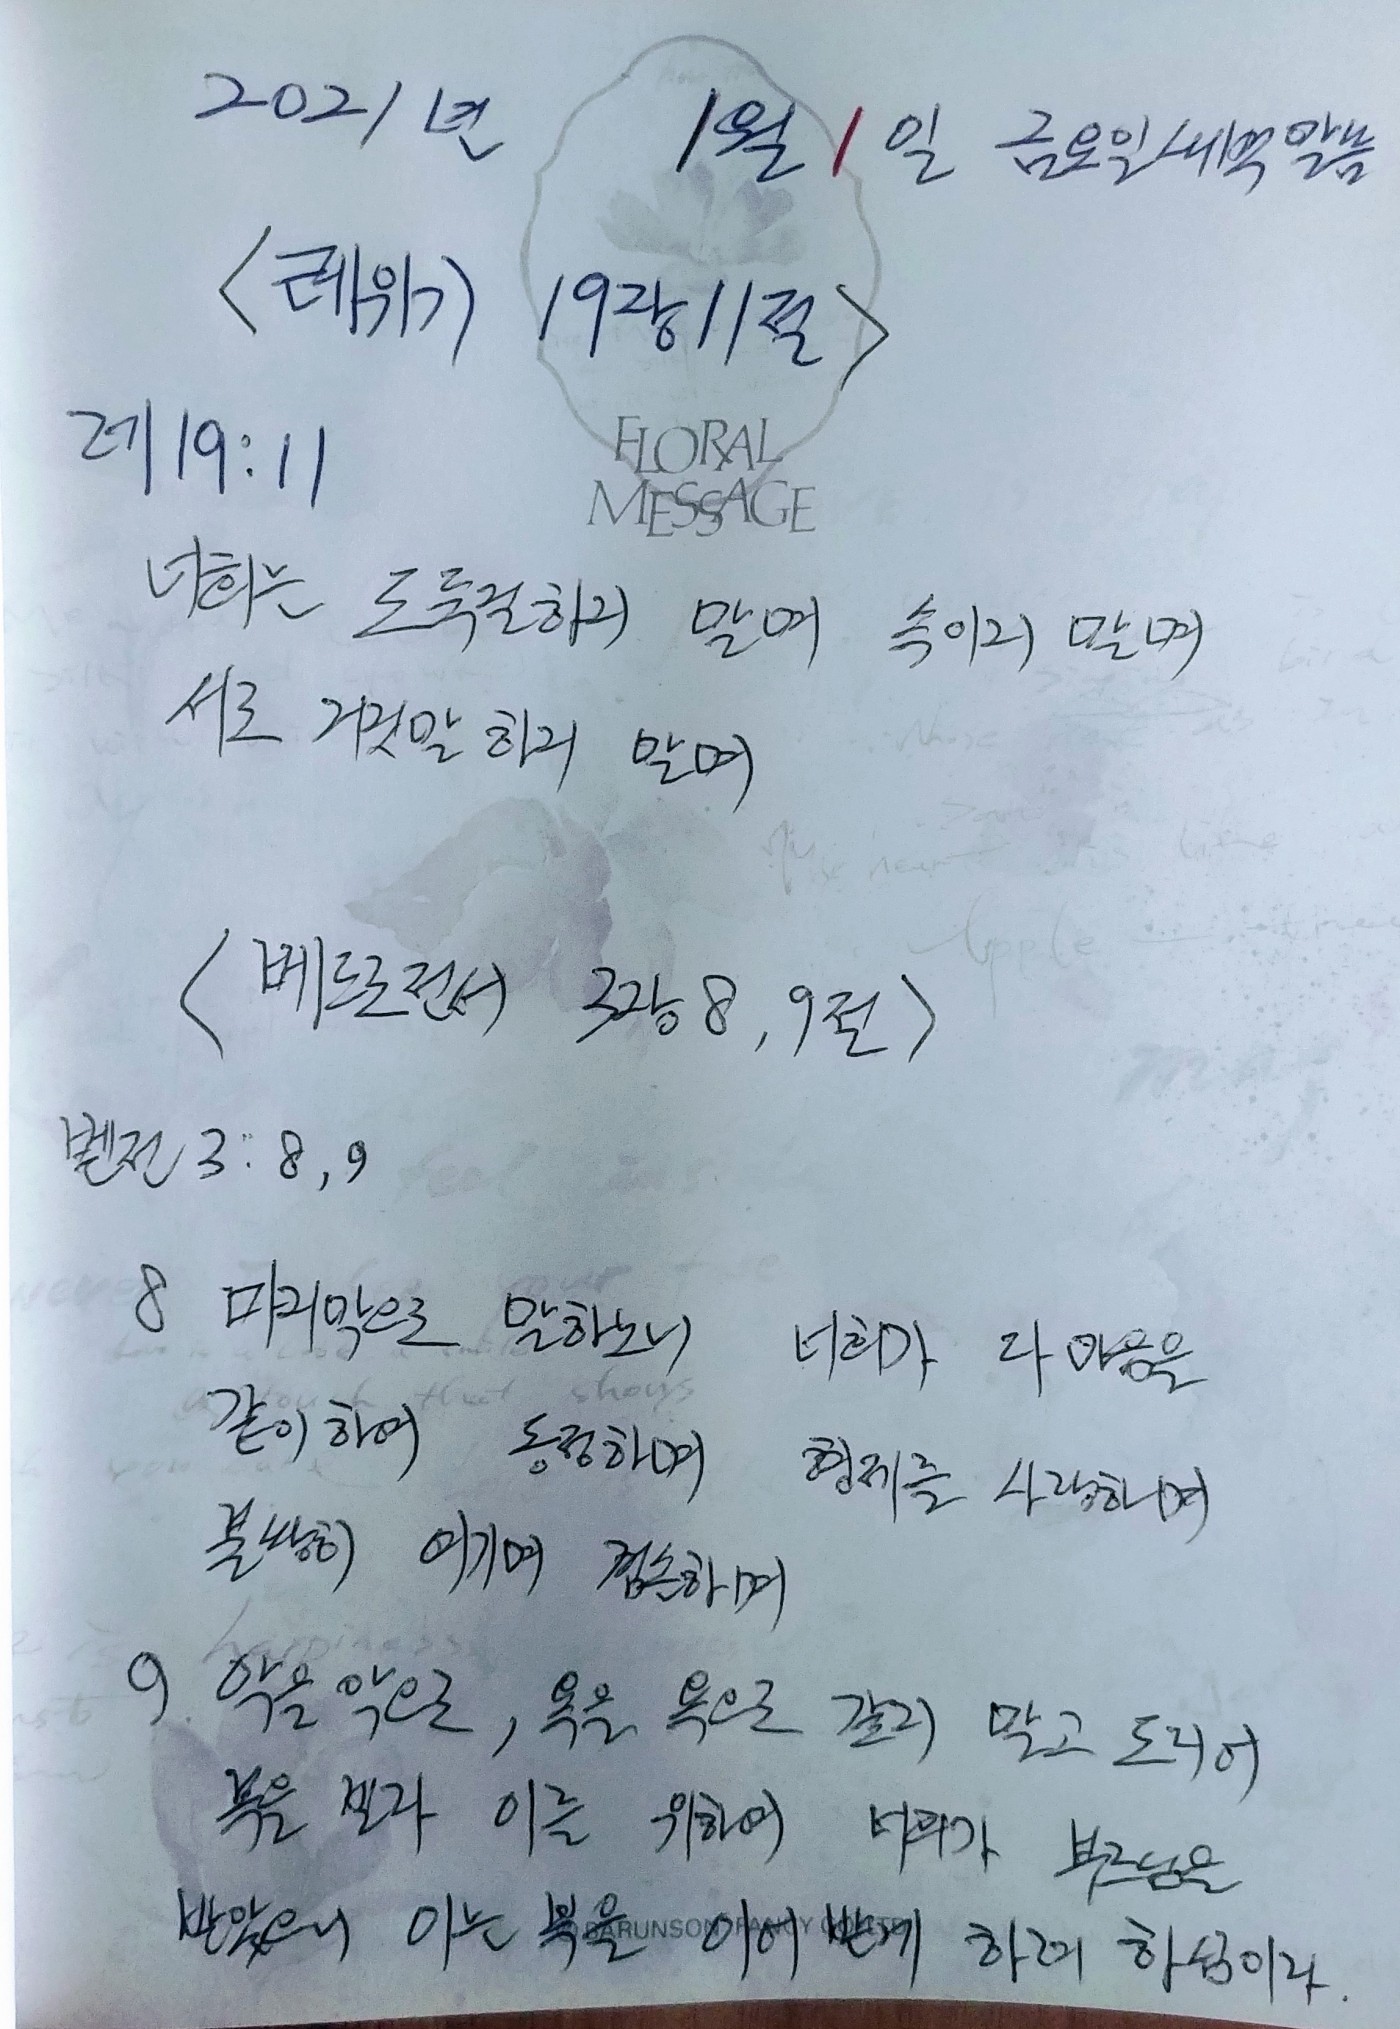 2021년 1월 1일 금요일새벽말씀
<레위기 19장11절>
레19:11
FLORAL
MESSAGE
너희는 도둑질하지 말며 속이지 말며
서로 거짓말 하지 말며
<베드로전서 3장8,9절>
벧전3:8,9
8 마지막으로 말하노니 너희가 다 마음을
같이하여 동정하며 형제를 사랑하며
불쌍히 여기며 겸손하며
9. 악을 악으로, 욕을 욕으로 갚지 말고 도리어
복을 빌라 이를 위하여 너희가 부르심을
받았으니 이는 복을 이어 받게 하려 하심이라.